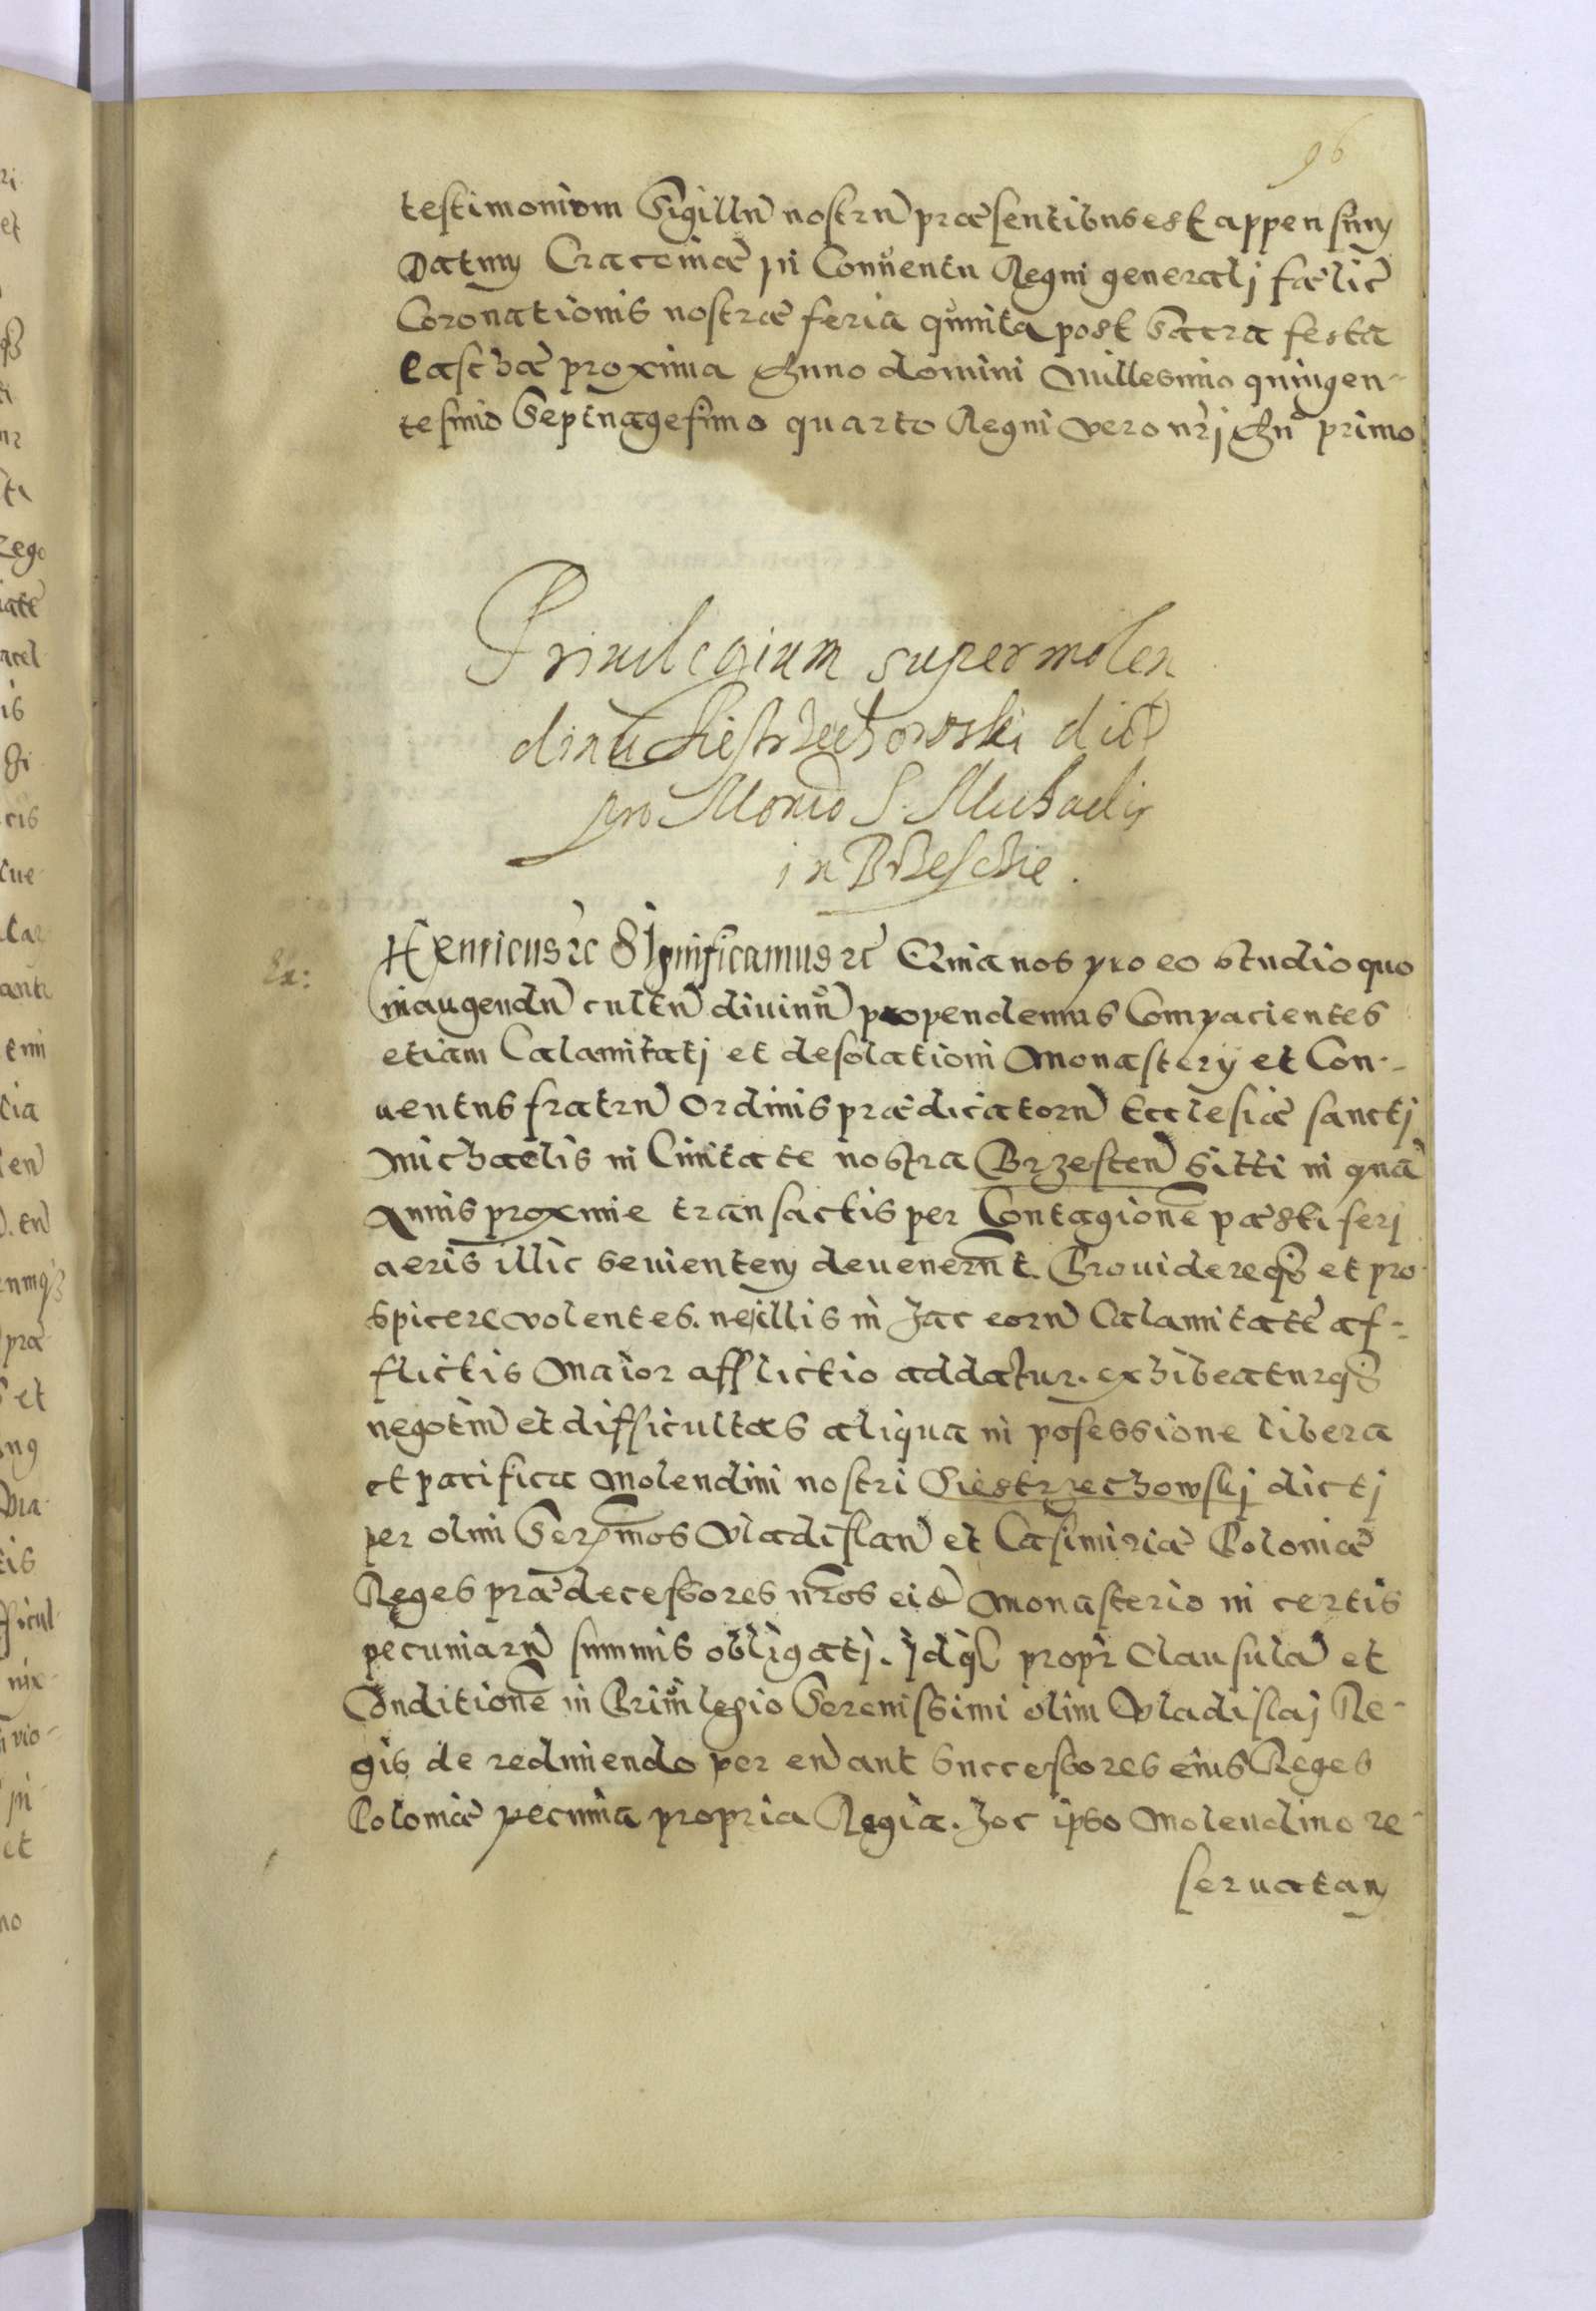 96
testimonium Sigillũ nostrũ præsentibus est appensum
Datum Cracoviæ in Conventu Regni generalj fælic̃
Coronationis nostræ feria quinta post Sacra festa
Paschæ proxima Anno domini Millesimo quingen-
tesimo Septuagesimo quarto Regni vero nr̃j An̊ primo
Priuilegium super molen
dinũ Piestrzechowski dict
pro Monrio S. Michaelis
in Brzescie.
Henricus ꝛc Significamus ꝛc Quia nos pro eo studio quo
in augendũ cultũ divinũ propendemus Compacientes
etiam Calamitatj et desolationi Monasterÿ et Con-
uentus fratrũ Ordinis prædicatorũ Ecclesiæ sanctj
Michaelis in Civitate nostra Brzesteñ sitti in quã
Annis proxime transactis per Contagionẽ pæstiferj
aeris illic sevientem devenerũt. Providereq̃ et pro
spicere volentes. ne illis in hac eorũ Calamitatẽ af-
flictis Maior afflictio addatur. exhibeaturq̃
negotiũ et difficultas aliqua in posessione libera
et pacifica Molendini nostri Piestrzechowskj dictj
per olim Serᵐos Vladislaũ et Casimiriæ Poloniæ
Reges prædecessores nr̃os eid̃ Monasterio in certis
pecuniarũ summis obligatj. Idq̃ propr̃ Clausulã et
Conditionẽ in Privilegio Serenissimi olim Vladislaj Re-
gis de redimendo per eũ aut Successores eius Reges
Poloniæ pecunia propria Regia. hoc ipso Molendino re-
servatam